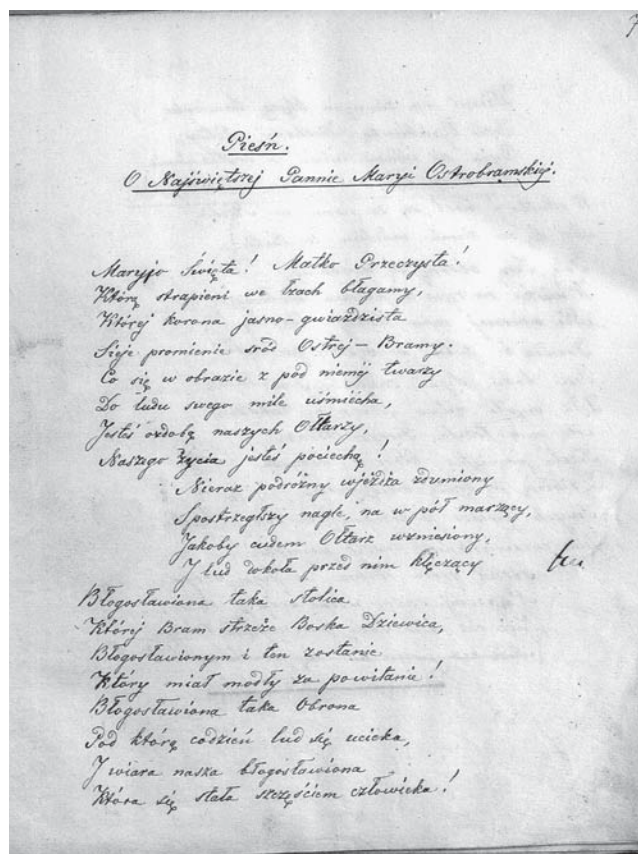 7
Pieśń.
O Najświętszej Pannie Maryi Ostrobramskiej.
Maryjo Święta! Matko Przeczysta!
Którą strapieni we łzach błagamy,
Której korona jasno-gwiaździsta
Sieje promienie śród Ostrej-Bramy.
Co się w obrazie z pod niemej twarzy
Do ludu swego mile uśmiecha,
Jesteś ozdobą naszych Ołtarzy,
Naszego życia jesteś pociechą!
Nieraz podróżny wjeżdża zdumiony
Spostrzegłszy nagle, na w pół marzący,
Jakoby cudem Ołtarz wzniesiony,
I lud dokoła przed nim klęczący
Błogosławiona taka stolica
Której Bram strzeże Boska Dziewica,
Błogosławionym i ten zostanie
Który miał modły za powitanie!
Błogosławiona taka Obrona
Pod którą codzień lud się ucieka,
I wiara nasza błogosławiona
Która się stała szczęściem człowieka!